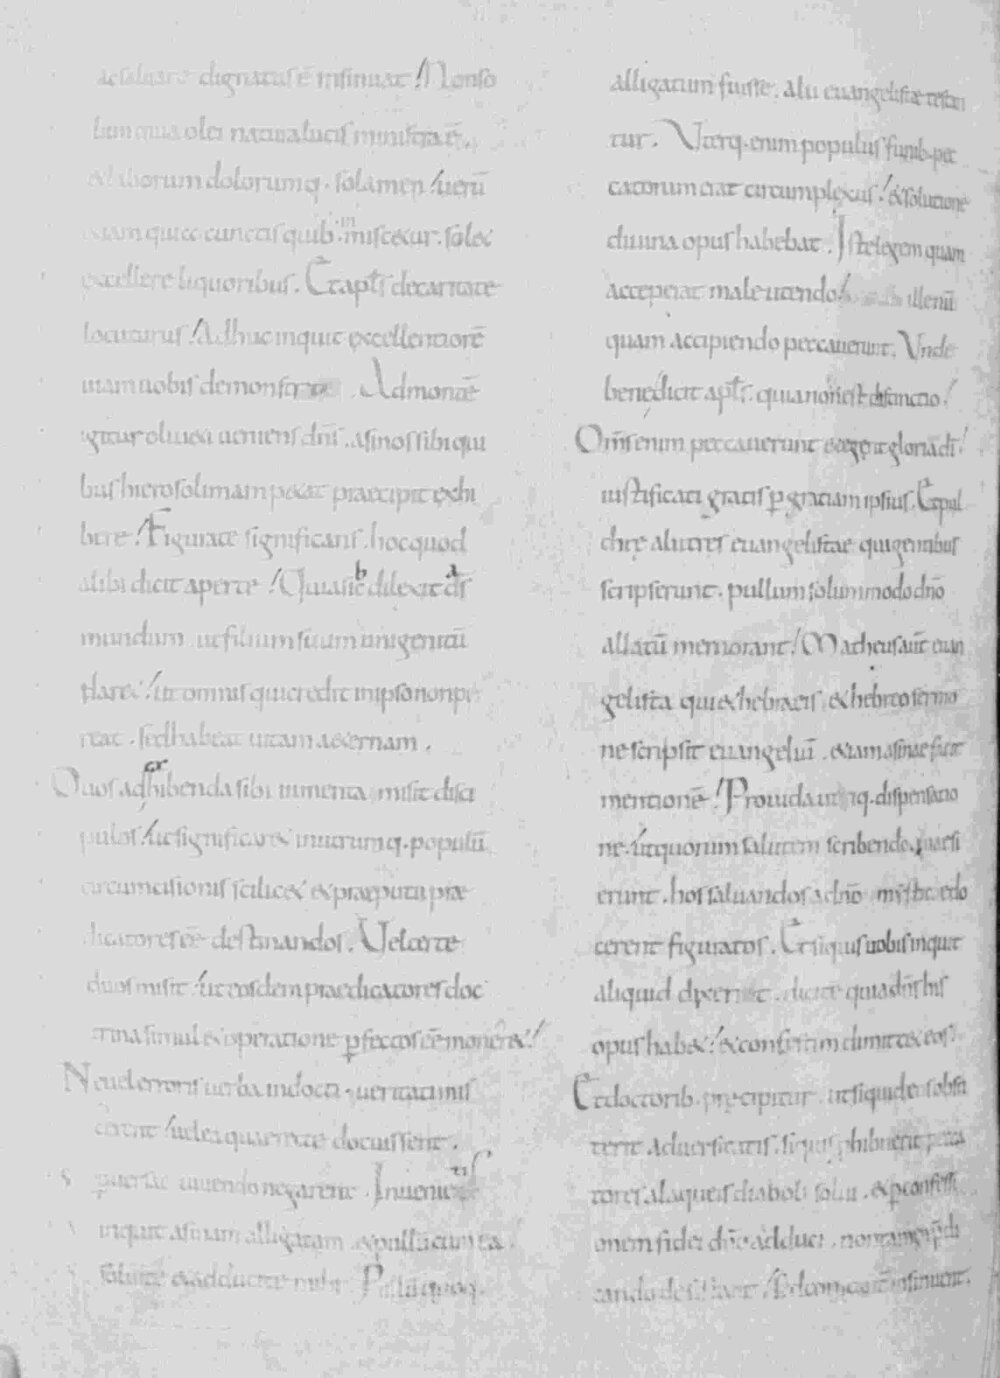 dignatus ē insinuat! Non so
lum quia olei natura lucis ministra ē,
& laborum dolorumq. solamen! uerū
&iam quia cunctis quib. inmisc&ur. sol&
excellere liquoribus. Et aptͤs de caritate
locuturus! Adhuc inquit excellentiorē
uiam uobis demonstro. Ad montē
igitur oliueti ueniens dn̄s. asinos sibi qui
bus hierosolimam petat praecipit exhi
bere! Figurate significans. hoc quod
alibi dicit aperte! Quia sic dilexit ds̄
mundum ut filium suum unigenitū
dar&! ut omnis qui credit in ipso non pe
reat. sed habeat uitam aeternam.
Quos adhibenda sibi iumenta misit disci
pulos! ut significar& in utrumq. populū
circumcisionis scilic& & praeputii præ
dicatores eē destinandos. Vel certe
duos misit! ut eosdem praedicatores doc
trina simul & operatione ꝑfectos eē moner&!
Ne uel erroris uerba indocti. ueritati mis
cerent! uel ea quae recte docuissent.
peruerse uiuendo negarent. Inuenietis
inquit asinam alligatam. & pullū cum ea.
soluite & adducite mihi. Pullū quoq.
alligatum fuisse. alii euangelistæ testan
tur. Vterq. enim populus funib. pec
catorum erat circumplexus! & solutione
diuina opus habebat. Iste legem quam
acceperat male utendo! ille nū
quam accipiendo peccauerunt. Vnde
bene dicit aptͤs. quia non est distinctio!
Om̄s enim peccauerunt & egent gloria dī!
iustificati gratis ꝑ gratiam ipsius. Et pul
chrę alii tres euangelistae qui gentibus
scripserunt. pullum solummodo dn̄o
allatū memorant! Matheus aut̄ euan
gelista qui ex hebraeis & hebreo sermo
ne scripsit euangeliū. &iam asinae facit
mentionē! Prouida utiq. dispensatio
ne. ut quorum salutem scribendo quaesi
erunt. hos saluandos a dn̄o mystice do
cerent figuratos. Et si quis uobis inquit
aliquid dixerit. dicite quia dn̄s his
opus hab&! & confestim dimitt& eos!
Et doctorib. precipitur. ut siquidem obsti
terit aduersitatis. si quis ꝓhibuerit pecca
tores a laqueis diaboli solui. & ꝑ confessi
onem fidei dn̄o adduci. non tamen
cando desistant! sed insinuent.